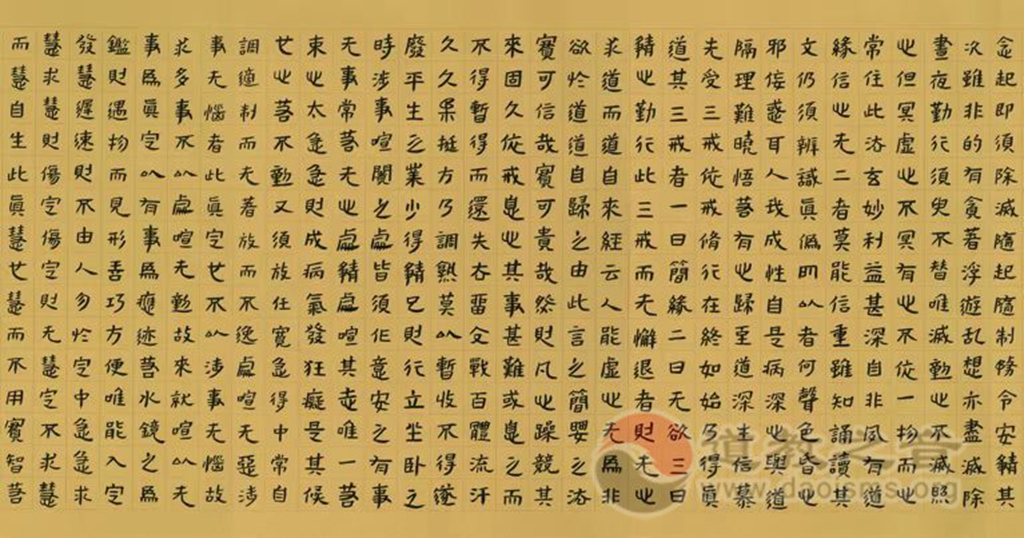 念起即須除滅隨起隨制務令安靜其
次雖非的有貪著浮遊乱想亦盡滅除
晝夜勤行須臾不替唯滅動心不滅照
心但冥虛心不冥有心不依一物而心
常住此法玄妙利益甚深自非夙有道
緣信心无二者莫能信重雖知誦讀其
文仍須辨識真偽所以者何聲色昏心
邪佞惑耳人我成性自是病深心與道
隔理難曉悟若有心歸至道深生信慕
先受三戒依戒脩行在終如始乃得真
道其三戒者一曰簡緣二曰无欲三曰
靜心勤行此三戒而无懈退者則无心
求道而道自來經云人能虛心无為非
欲於道道自歸之由此言之簡要之法
實可信哉實可貴哉然則凡心躁競其
來固久依戒息心其事甚難或息之而
不得暫得而還失去留交戰百體流汗
久久柔挺方乃調熟莫以暫收不得遂
廢平生之業少得靜已則行立坐臥之
時涉事喧鬧之處皆須作意安之有事
无事常若无心處靜處喧其志唯一若
束心太急急則成病氣發狂癡是其候
也心若不動又須放任寬急得中常自
調適制而无著放而不逸處喧无惡涉
事无惱者此真定也不以涉事无惱故
求多事不以處喧无動故來就喧以无
事為真定以有事為應跡若水鏡之為
鑑則遇物而見形善巧方便唯能入定
發慧遲速則不由人勿於定中急急求
慧求慧則傷定傷定則无慧定不求慧
而慧自生此真慧也慧而不用實智若
道教之音
www.daoisms.org